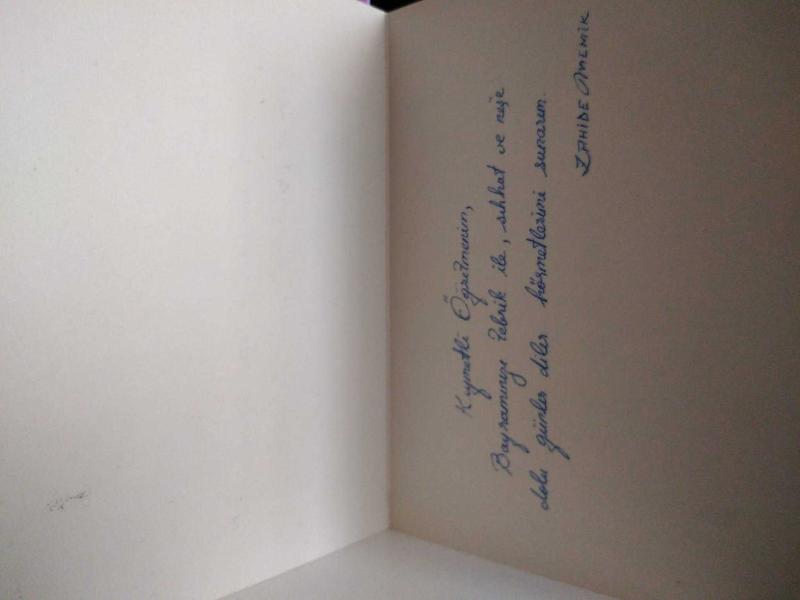 Kıymetli Öğretmenim,
Bayramınızı tebrik ile, sıhhat ve neş'e
dolu günler diler hörmetlerimi sunarım.
ZAHİDE MEMİK